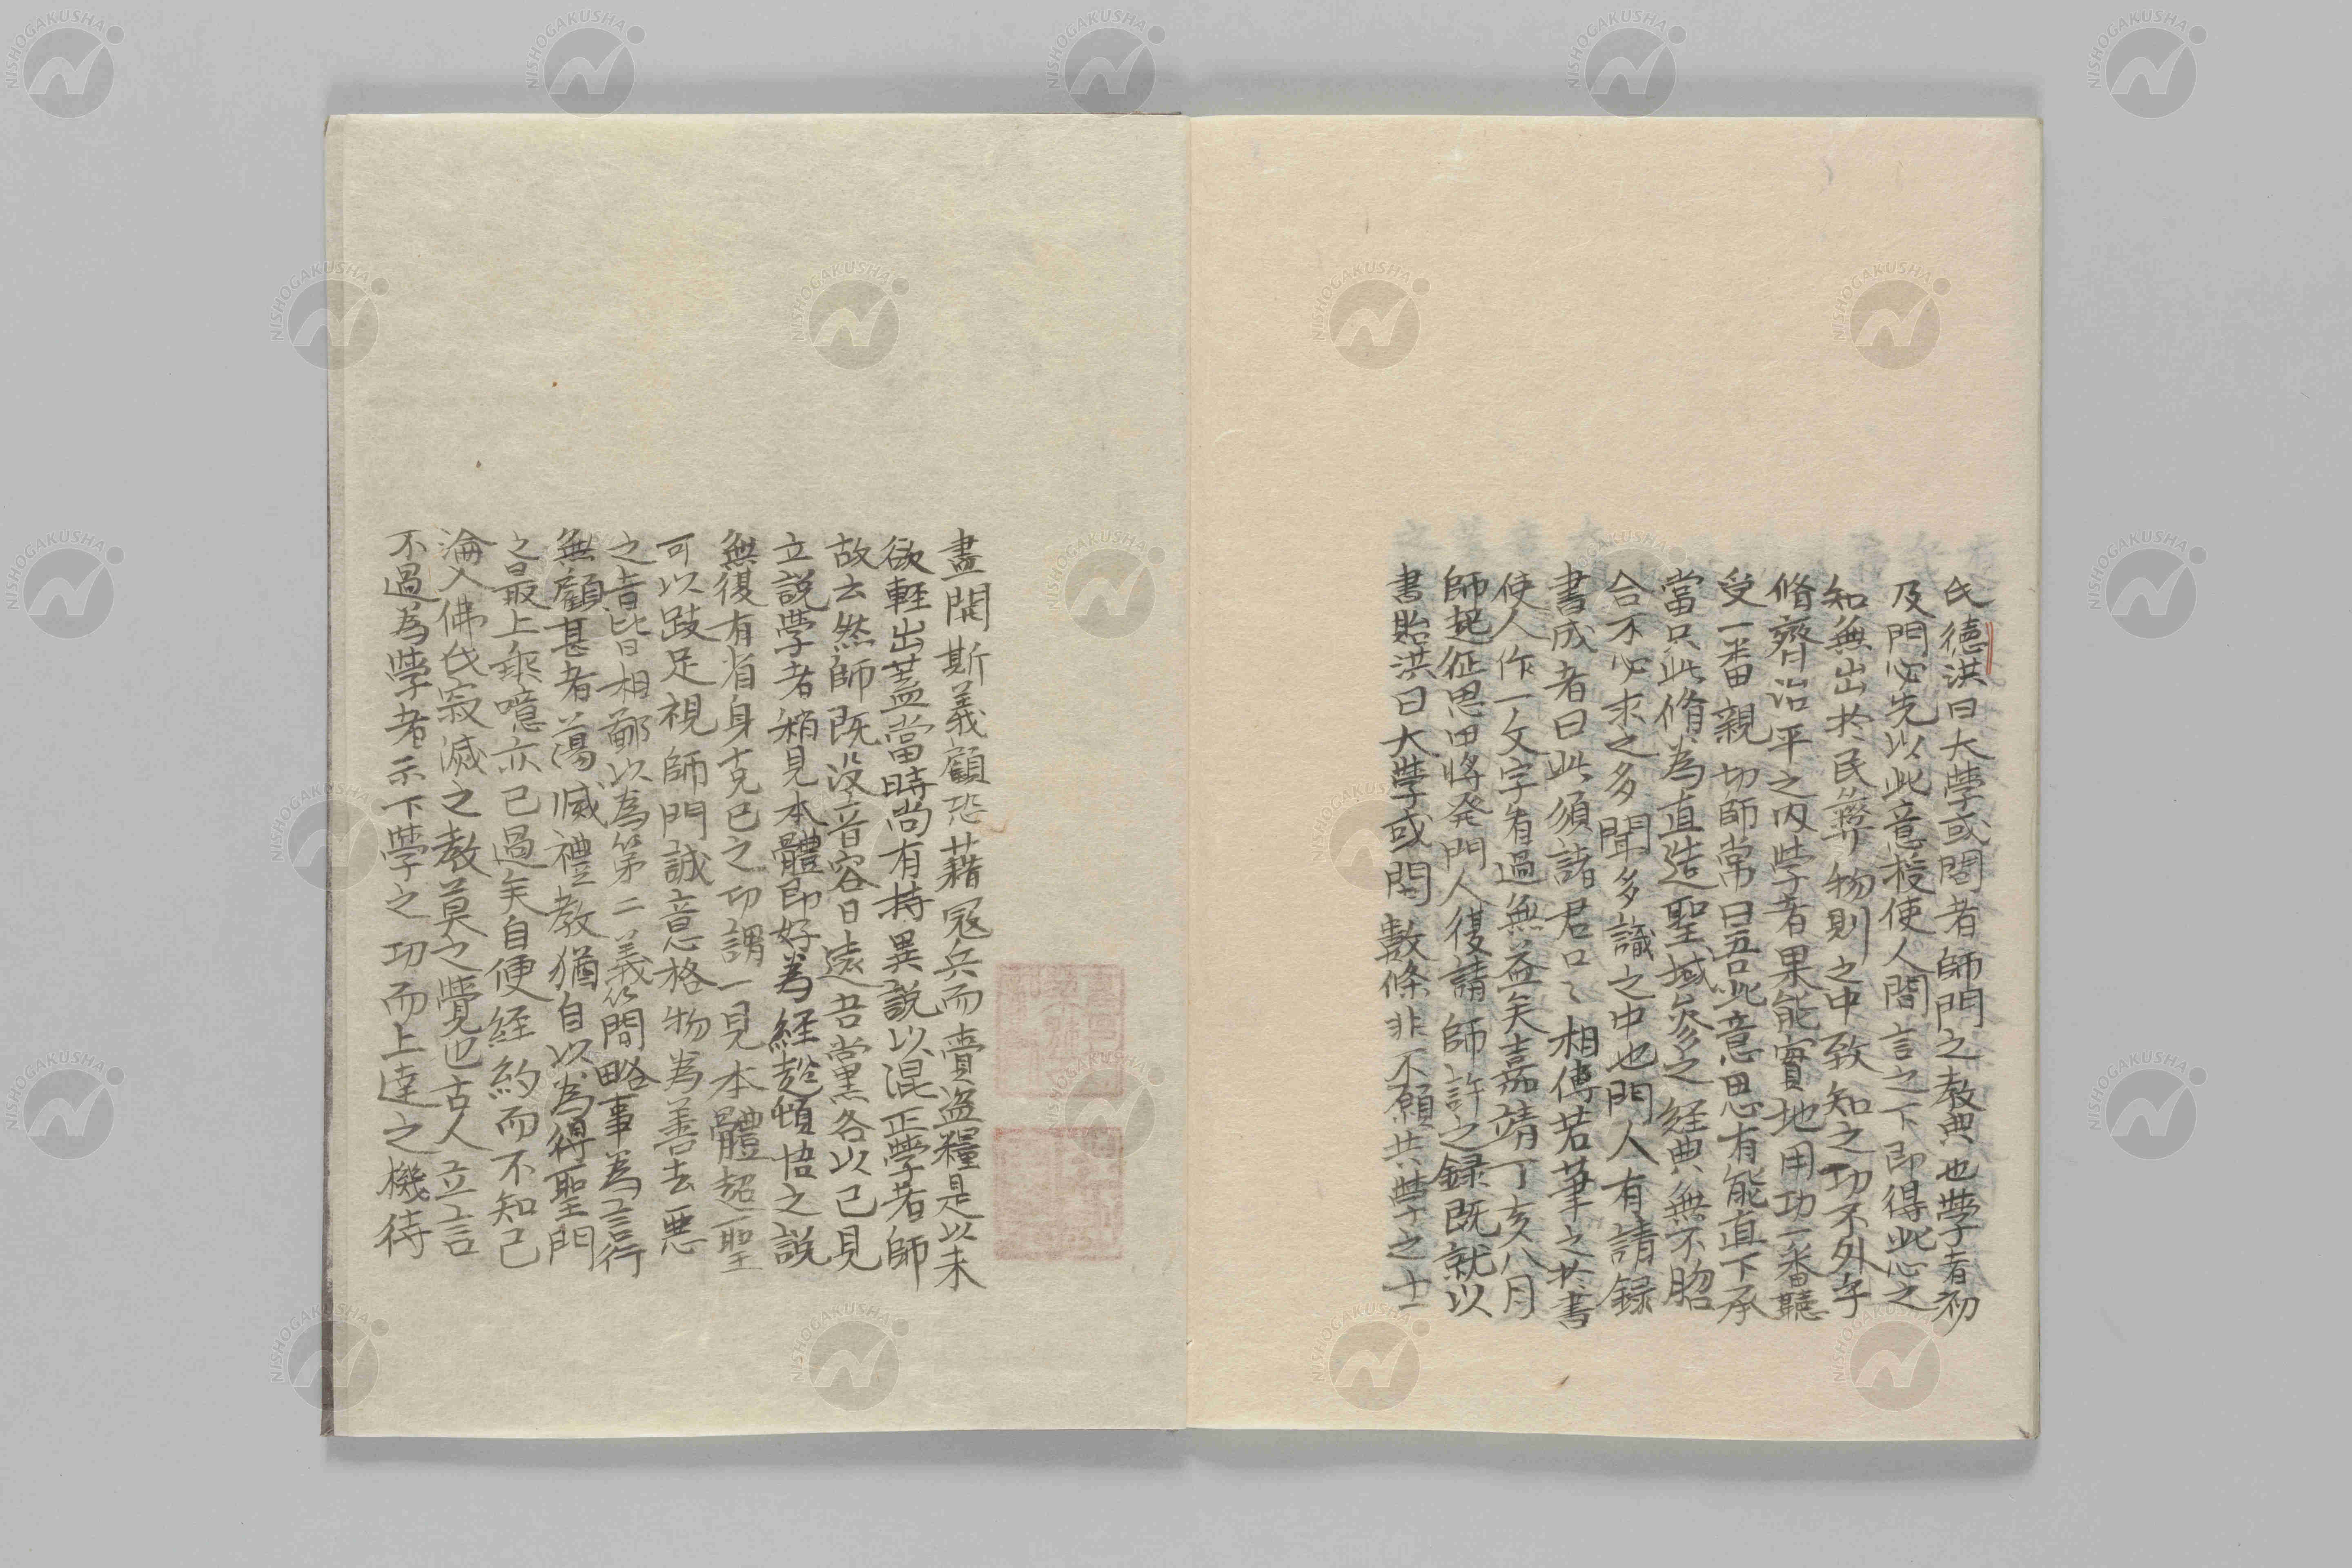 氏德洪曰大學或問者師門之教典也學者初
及門必先以此意授使人聞言之下即得此心之
知無出於民彝物則之中致知之功不外乎
脩齊治平之内學者果能實地用功一番聽
受一番親切師常曰吾此意思有能直下承
當只此脩為直造聖域參之経典無不脗
合不必求之多聞多識之中也門人有請録
書成者曰此須諸君口〻相傳若筆之於書
使人作一文字看過無益矣嘉靖丁亥八月
師起征思田将発門人復請師許之録既就以
書貽洪曰大學或問數條非不願共學之士
盡聞斯義顧恐藉寇兵而賫盗糧是以未
欲軽出蓋當時尚有持異説以混正學者師
故云然師既没音容日遠吾黨各以己見
立説學者稍見本體即好為経超頓悟之説
無復有省身克己之功謂一見本體超聖
可以跂足視師門誠意格物為善去悪
之旨皆相鄙以為第二義簡略事為言行
無顧甚者蕩滅禮教猶自以為得聖門
之最上乗噫亦已過矣自便径約而不知已
淪入佛氏寂滅之教莫之覺也古人立言
不過為學者示下學之功而上達之機待
NISHOGAKUSHA